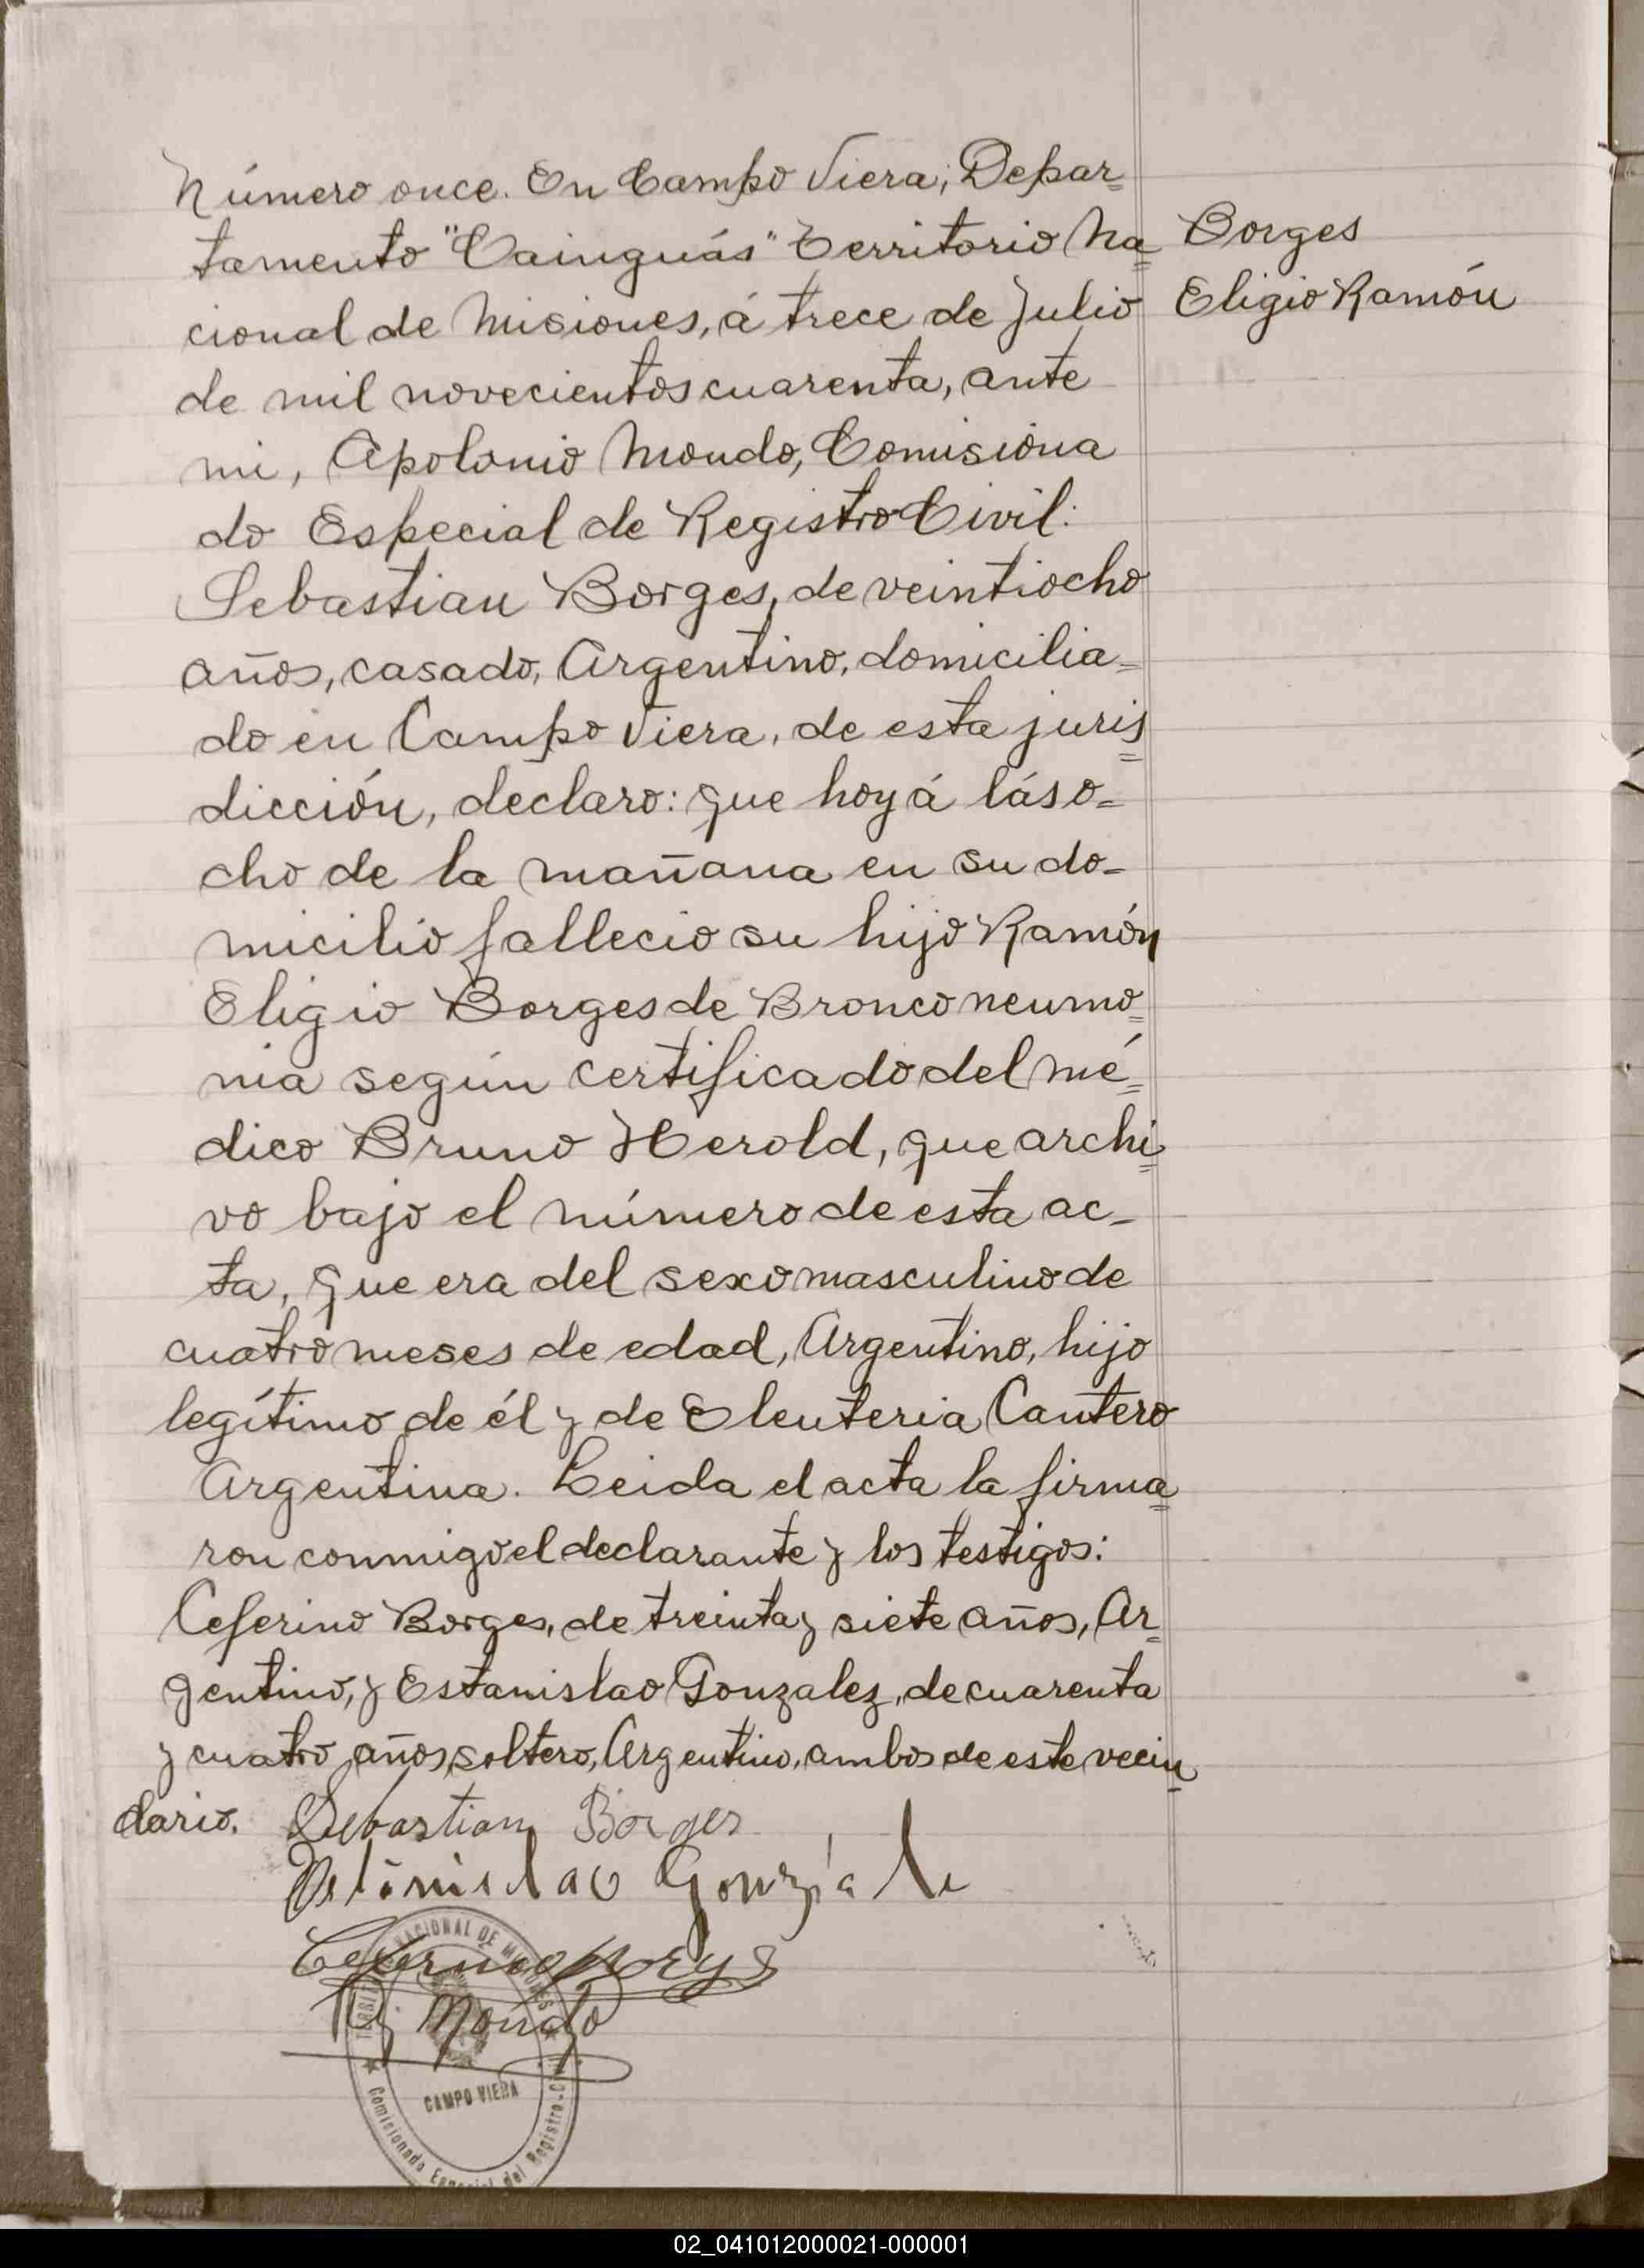 Número once. En Campo Viera; Depar=
tamento "Cainguás" Territorio Na=
cional de Misiones, á trece de Julio
de mil novecientos cuarenta, ante
mi, Apolonio Mondo, Comisiona
do Especial de Registro Civil:
Sebastian Borges, de veintiocho
años, casado, Argentino, domicilia=
do en Campo Viera, de esta juris=
dicción, declaro: que hoy á lás o=
cho de la mañana en su do-
micilio fallecio su hijo Ramón
Eligio Borges de Bronco neumo=
nia según certificado del mé=
dico Bruno Herold, que archi=
vo bajo el número de esta ac-
ta, que era del sexo masculino de
cuatro meses de edad, Argentino, hijo
legítimo de él y de Eleuteria Cantero
Argentina. Leida el acta la firma=
ron conmigo el declarante y los testigos:
Ceferino Borges, de treinta y siete años, Ar=
gentino, y Estanislao Gonzalez, de cuarenta
y cuatro años, soltero, Argentino, ambos de este vecin=
dario.
Borges
Eligio Ramón
Sebastian Borges
Gonzále
Mondo
NACIONAL DE MISIONES
CAMPO VIERA
Comisionado Especial del Registro-Civil
02_041012000021-000001